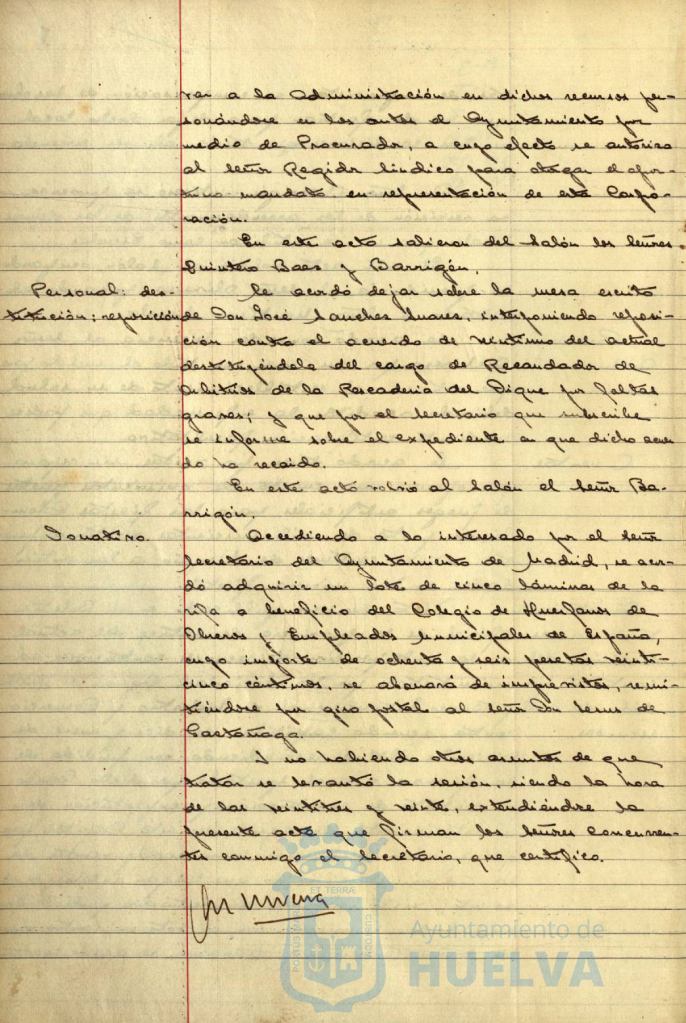 rar a la Administración en dichos recursos per-
sonándose en los autos el Ayuntamiento por
medio de Procurador, a cuyo efecto se autoriza
al Señor Regidor Síndico para otorgar el opor-
tuno mandato en representación de esta Corpo-
ración.
En este acto salieron del Salón los Señores
Quintero Baez y Barrigón.
Personal: des-
titución; reposición
Se acordó dejar sobre la mesa escrito
de Don José Sanchez Suarez, interponiendo reposi-
ción contra el acuerdo de veintiuno del actual
destituyéndole del cargo de Recaudador de
Arbitrios de la Pescadería del Dique por faltas
graves; y que por el Secretario que subscribe
se informe sobre el expediente en que dicho acuer-
do ha recaido.
En este acto volvió al Salón el Señor Ba-
rrigón.
Donativo.
Accediendo a lo interesado por el Señor
Secretario del Ayuntamiento de Madrid, se acor-
dó adquirir un lote de cinco láminas de la
rifa a beneficio del Colegio de Huerfanos de
Obreros y Empleados Municipales de España,
cuyo importe de ochenta y seis pesetas veinti-
cinco céntimos, se abonará de imprevistos, remi-
tiéndose por giro postal al Señor Don Jesus de
Castañaga.
Y no habiendo otros asuntos de que
tratar se levantó la sesión, siendo la hora
de las veintitres y veinte, extendiéndose la
presente acta que firman los Señores concurren-
tes conmigo el Secretario, que certifico.
PORTUS MARIS
ET TERRÆ
CUSTODIA
Ayuntamiento de
HUELVA